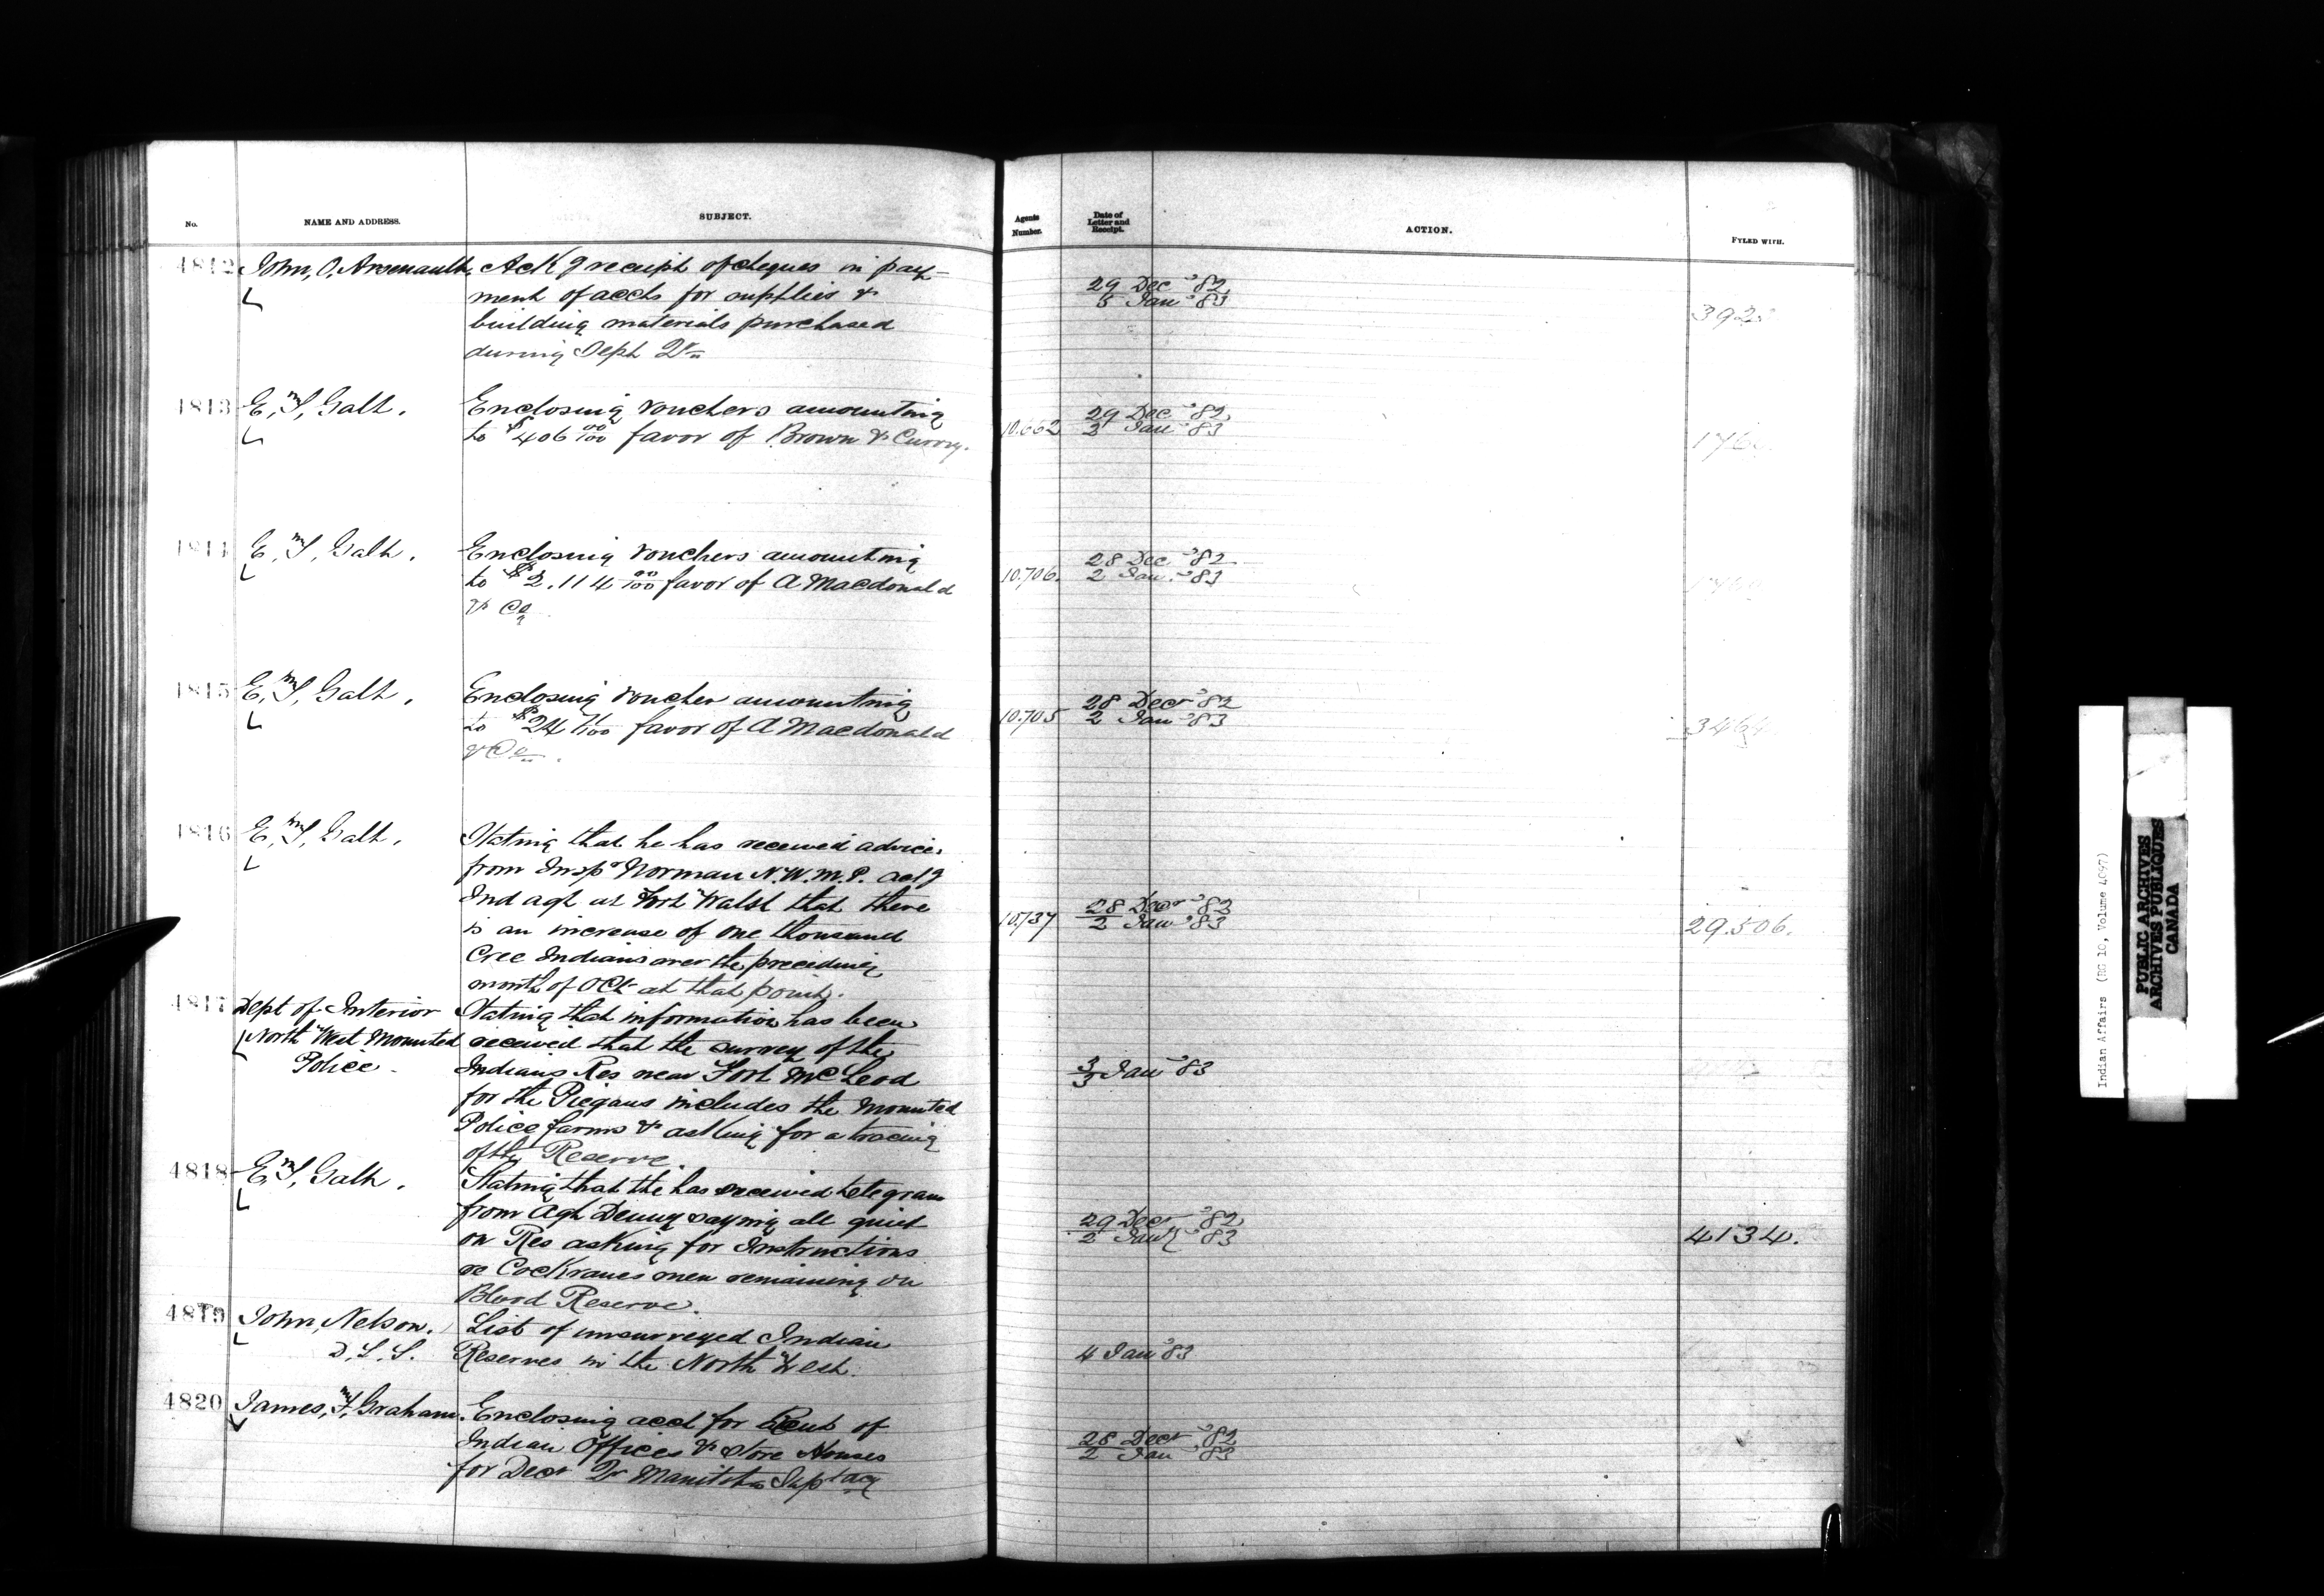 No. NAME AND ADDRESS. SUBJECT. Agents Number. Date of Letter and Receipt. ACTION. FYLED WITH.
4812 John, O, Arsenault, Ack g receipt of cheques in pay-
ment of accts for supplies &
building materials purchased
during Sept Qr
29 Dec '82
5 Jan '83
392
4813 E, T, Galt. Enclosing vouchers amounting
to $406 00/100 favor of Brown & Curry.
10.662
29 Dec '82
2 Jan '83
176
4814 E, T, Galt. Enclosing vouchers amounting
to $2.114 00/100 favor of A Macdonald
& Co
10.706.
28 Dec '82
2 Jan '83
4815 E, T, Galt. Enclosing voucher amounting
to $24 71/100 favor of A Macdonald
& Co.
10.705
28 Decr '82
2 Jan '83
3464
4816 E, T, Galt. Stating that he has received advices
from Inspr Norman N.W.M.P. actg
Ind agt at Fort Walsh that there
is an increase of one thousand
Cree Indians over the preceding
month of Oct at that point.
10.737
28 Decr '82
2 Jan '83
29.506.
4817 Dept of Interior
North West Mounted
Police -
Stating that information has been
received that the survey of the
Indians Res near Fort McLeod
for the Piegans includes the Mounted
Police farms & asking for a tracing
of the Reserve.
3
3 Jan '83
4818 E, T, Galt. Stating that the has received telegram
from Agt Denny saying all quiet
on Res asking for Instructions
re Cockranes men remaining on
Blood Reserve.
29 Decr '82
2 Jany '83
4134.
4819 John, Nelson.
D. L. S.
List of unsurveyed Indian
Reserves in the North West.
4 Jan '83
4820 James, F, Graham. Enclosing acct for Rent of
Indian Offices & Store Houses
for Decr Qr Manitoba Suptacy
28 Decr '82
2 Jan '83
Indian Affairs (RG 10, Volume 4097)
PUBLIC ARCHIVES
ARCHIVES PUBLIQUES
CANADA